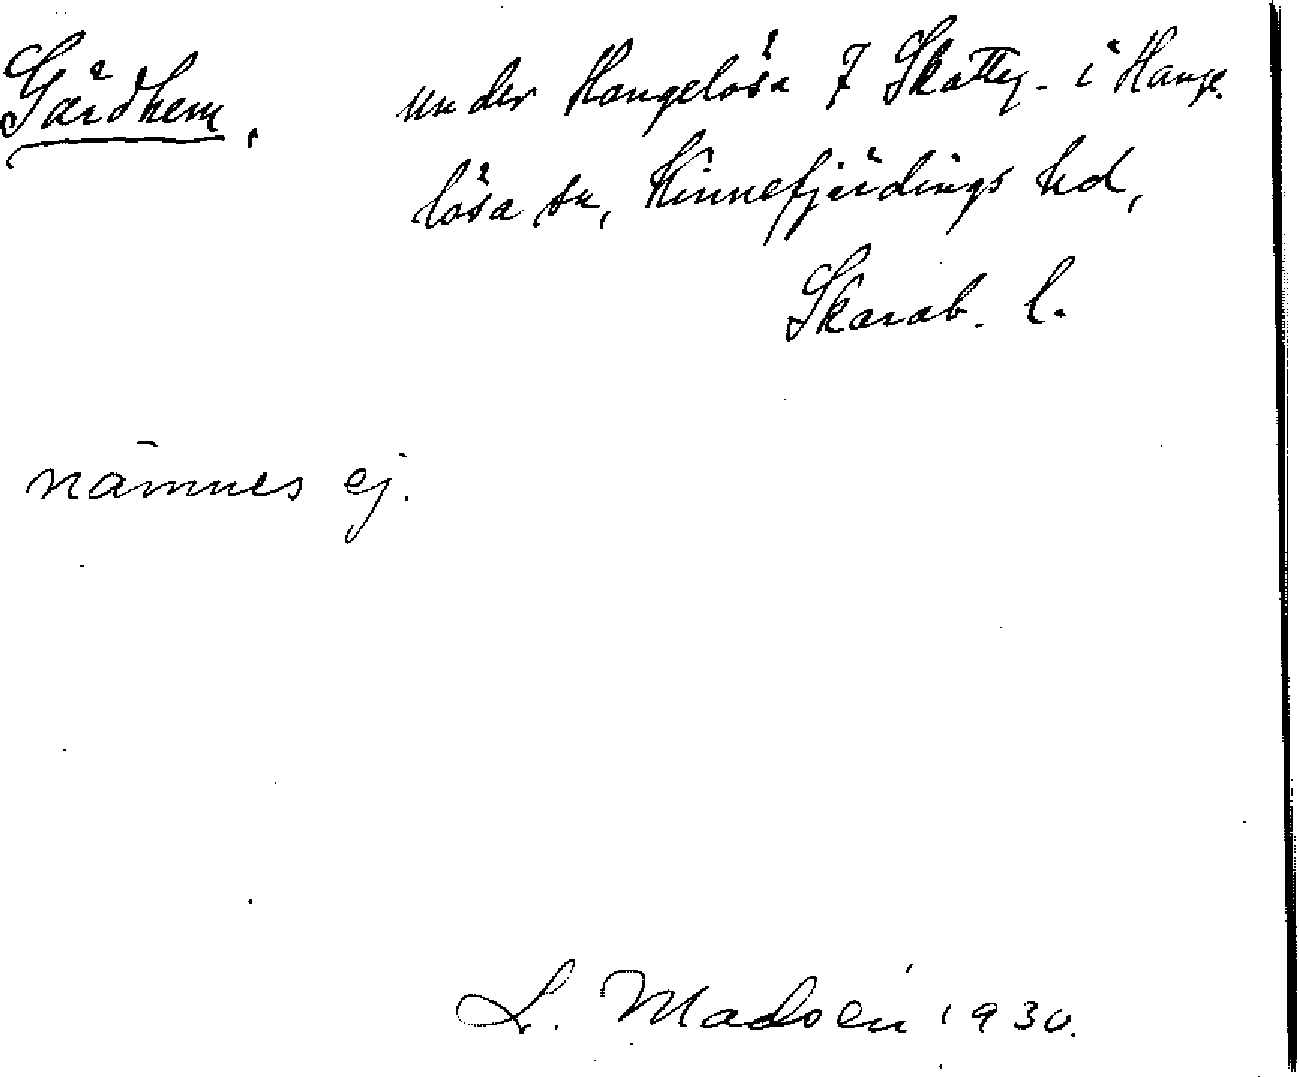 Gärdhem, under Hangelösa 7 Skatteg. i Hange-
lösa sn, Kinnefjärdings hd,
Skarab. l.
nämnes ej.
L. Madsén 1930.